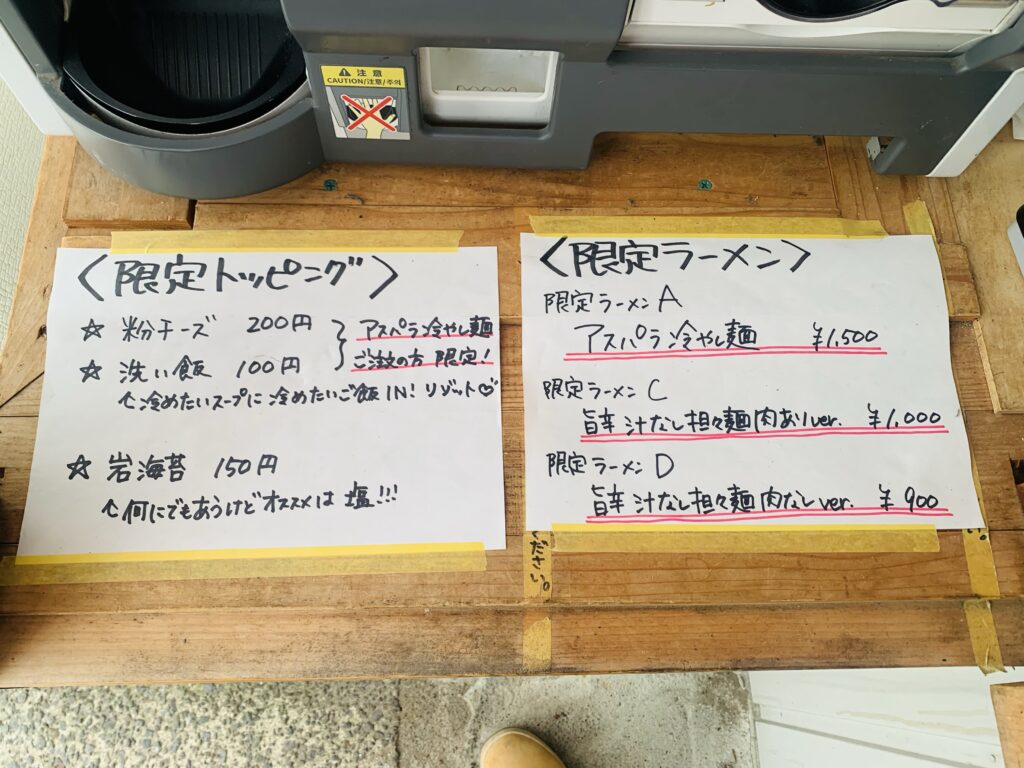 注意
CAUTION/注意/주의
〈限定トッピング〉
☆ 粉チーズ 200円
☆ 洗い飯 100円
アスパラ冷やし麺
ご注文の方 限定!
冷めたいスープに冷めたいご飯IN! リゾット♡
☆ 岩海苔 150円
何にでもあうけどオススメは 塩!!!
〈限定ラーメン〉
限定ラーメン A
アスパラ冷やし麺 ¥1,500
限定ラーメン C
旨辛 汁なし担々麺 肉ありver. ¥1,000
限定ラーメン D
旨辛 汁なし担々麺 肉なしver. ¥900
ください。